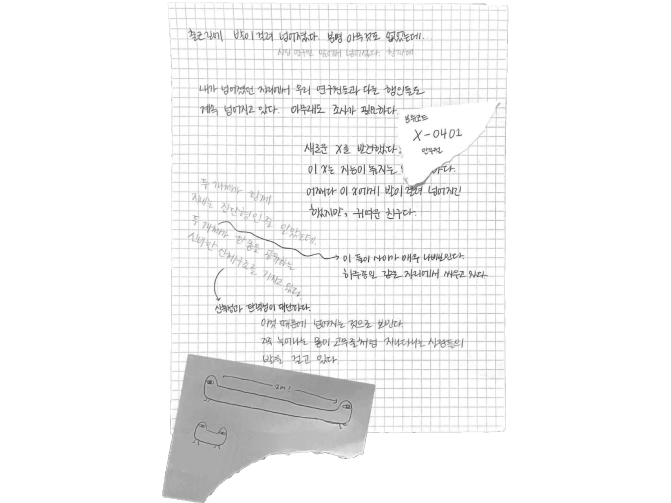 출근길에 발이 걸려 넘어졌다. 분명 아무것도 없었는데.
내가 넘어졌던 자리에서 우리 연구원들과 다른 행인들도
계속 넘어지고 있다. 아무래도 조사가 필요하다.
분류코드
X-0401
안전함
새로운 X를 발견했다.
이 X는 지능이 높지는
어쩌다 이 X에게 발이 걸려 넘어지긴
했지만, 귀여운 친구다.
두 개체가 함께
지내는 집단형인 줄 알았는데,
두 개체가 한 몸을 공유하는
신비한 신체구조를 가지고 있다.
이 둘의 사이가 매우 나빠보인다.
하루종일 같은 자리에서 싸우고 있다.
신축성과 탄성력이 대단하다.
이것 때문에 넘어지는 것으로 보인다.
쭉 늘어나는 몸이 고무줄처럼 지나다니는 사람들의
발을 걸고 있다.
2m!